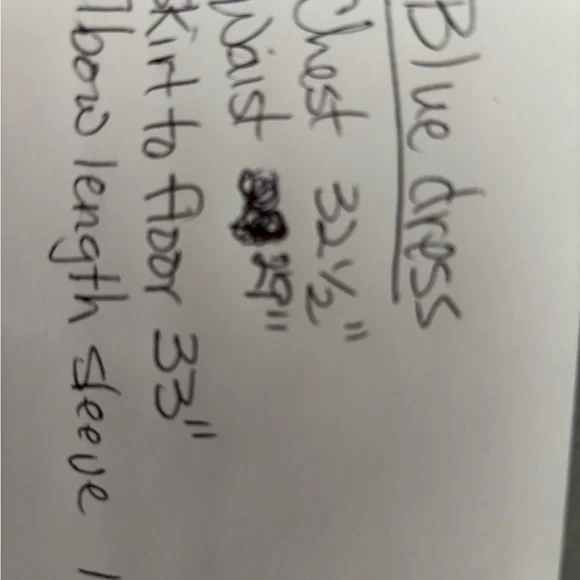 Blue dress
Chest 32½"
Waist 29"
skirt to floor 33"
lbow length sleeve 1